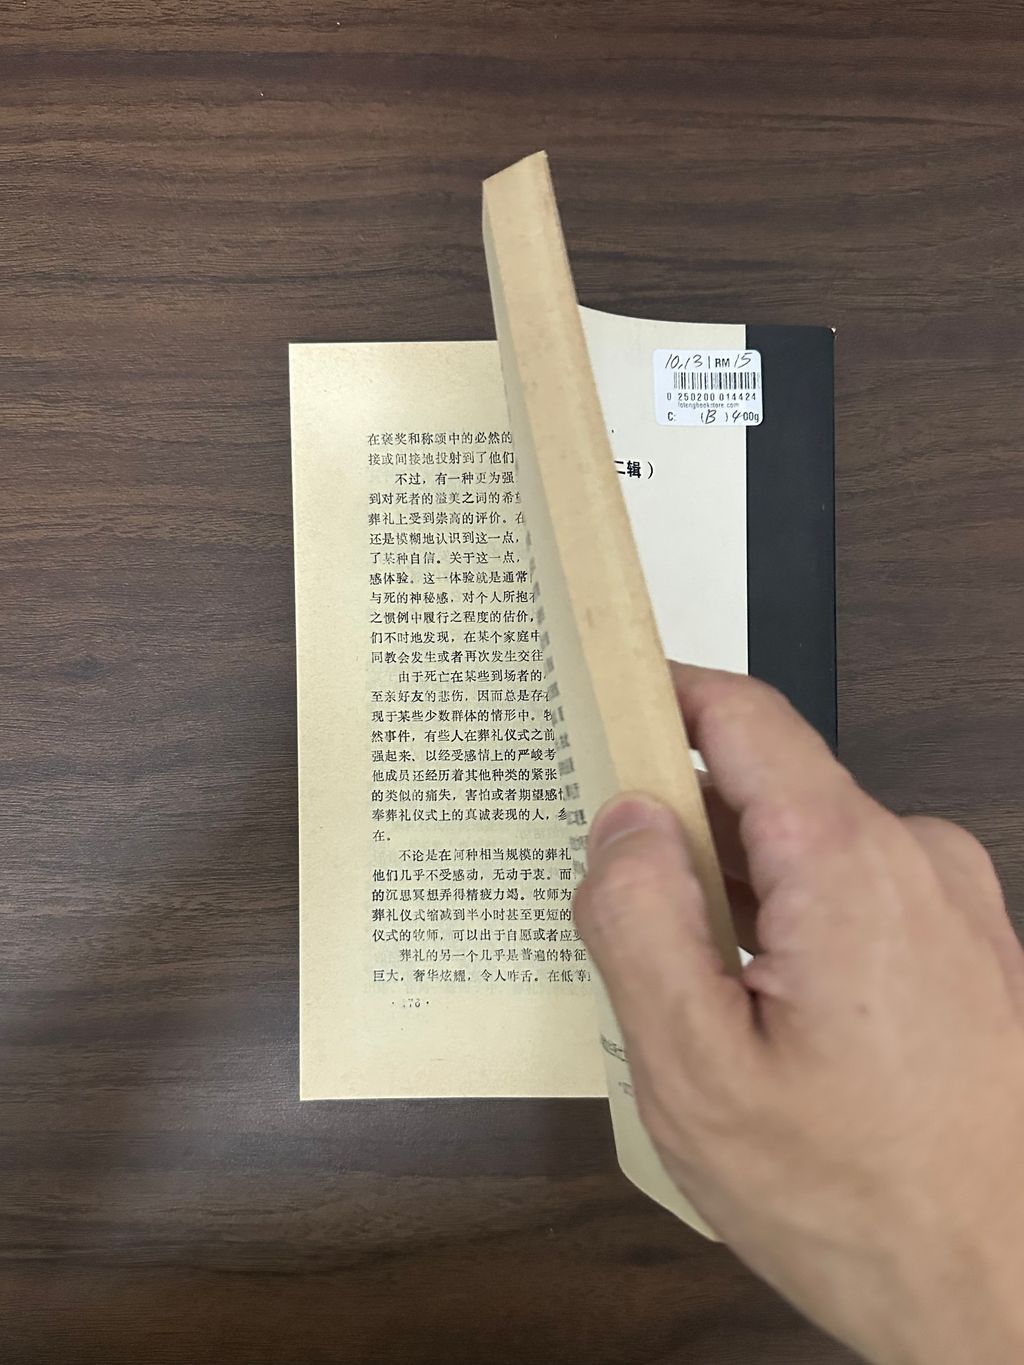 在褒奖和称颂中的必然的
接或间接地投射到了他们
不过，有一种更为强
到对死者的溢美之词的希望
葬礼上受到崇高的评价。在
还是模糊地认识到这一点，
了某种自信。关于这一点，
感体验。这一体验就是通常
与死的神秘感，对个人所抱
之惯例中履行之程度的估价，
们不时地发现，在某个家庭中
同教会发生或者再次发生交往
由于死亡在某些到场者的
至亲好友的悲伤，因而总是存在
现于某些少数群体的情形中。牧
然事件，有些人在葬礼仪式之前
强起来、以经受感情上的严峻考
他成员还经历着其他种类的紧张
的类似的痛失，害怕或者期望感情
奉葬礼仪式上的真诚表现的人，
在。
不论是在何种相当规模的葬礼
他们几乎不受感动，无动于衷。而
的沉思冥想弄得精疲力竭。牧师为
葬礼仪式缩减到半小时甚至更短的
仪式的牧师，可以出于自愿或者应要
葬礼的另一个几乎是普遍的特征
巨大，奢华炫耀，令人咋舌。在低等
·176·
10,13 RM 15
0 250200 014424
C: (B) 400g
二辑）